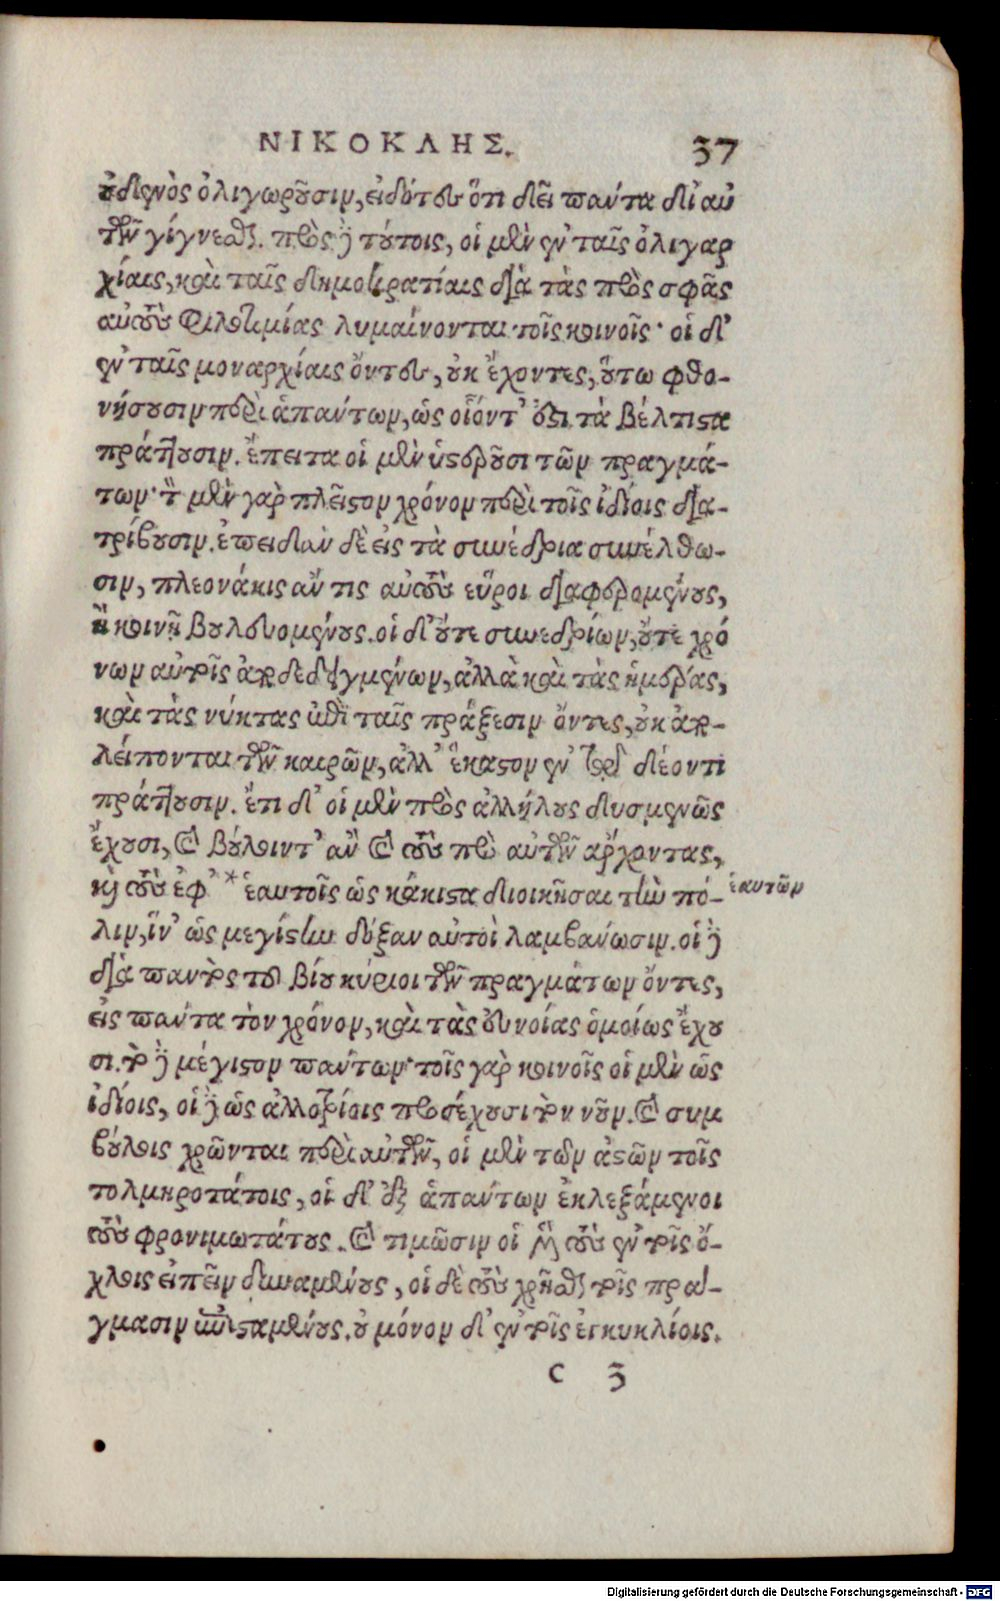 ΝΙΚΟΚΛΗΣ. 37
οὐδενὸς ὀλιγωροῦσιν, εἰδότες ὅτι δεῖ πάντα δι' αὐ
τῶν γίγνεσθαι. πρὸς δὲ τούτοις, οἱ μὲν ἐν ταῖς ὀλιγαρ
χίαις, καὶ ταῖς δημοκρατίαις διὰ τὰς πρὸς σφᾶς
αὐτοὺς φιλοτιμίας λυμαίνονται τοῖς κοινοῖς· οἱ δ'
ἐν ταῖς μοναρχίαις ὄντες, οὐκ ἔχοντες, ὅτω φθο-
νήσουσιν περὶ ἁπάντων, ὡς οἷόντ' ἐστι τὰ βέλτιστα
πράττουσιν. ἔπειτα οἱ μὲν ὑστεροῦσι τῶν πραγμά-
των· τὸν μὲν γὰρ πλεῖστον χρόνον περὶ τοῖς ἰδίοις δια-
τρίβουσιν. ἐπειδὰν δὲ εἰς τὰ συνέδρια συνέλθω-
σιν, πλεονάκις ἄν τις αὐτοὺς εὕροι διαφερομένους,
ἢ κοινῇ βουλευομένους. οἱ δ' οὔτε συνεδρίων, οὔτε χρό
νων αὐτοῖς ἀποδεδειγμένων, ἀλλὰ καὶ τὰς ἡμέρας,
καὶ τὰς νύκτας ἐπὶ ταῖς πράξεσιν ὄντες, οὐκ ἀπο-
λείπονται τῶν καιρῶν, ἀλλ' ἕκαστον ἐν τῷ δέοντι
πράττουσιν. ἔτι δ' οἱ μὲν πρὸς ἀλλήλους δυσμενῶς
ἔχουσι, καὶ βούλοιντ' ἂν καὶ τοὺς πρὸ αὐτῶν ἄρχοντας,
καὶ τοὺς ἐφ' * ἑαυτοῖς ὡς κάκιστα διοικῆσαι τὴν πό- ἑαυτῶν
λιν, ἵν' ὡς μεγίστην δόξαν αὐτοὶ λαμβάνωσιν. οἱ δὲ
διὰ παντὸς τοῦ βίου κύριοι τῶν πραγμάτων ὄντες,
εἰς πάντα τὸν χρόνον, καὶ τὰς εὐνοίας ὁμοίως ἔχου
σι. τὸ δὲ μέγιστον πάντων· τοῖς γὰρ κοινοῖς οἱ μὲν ὡς
ἰδίοις, οἱ δὲ ὡς ἀλλοτρίοις προσέχουσι τὸν νοῦν. καὶ συμ
βούλοις χρῶνται περὶ αὐτῶν, οἱ μὲν τῶν ἀστῶν τοῖς
τολμηροτάτοις, οἱ δ' ἐξ ἁπάντων ἐκλεξάμενοι
τοὺς φρονιμωτάτους. καὶ τιμῶσιν οἱ μὲν τοὺς ἐν τοῖς ὄ-
χλοις εἰπεῖν δυναμένους, οἱ δὲ τοὺς χρῆσθαι τοῖς πρά-
γμασιν ἐπισταμένους. οὐ μόνον δ' ἐν τοῖς ἐγκυκλίοις.
c 3
Digitalisierung gefördert durch die Deutsche Forschungsgemeinschaft - DFG